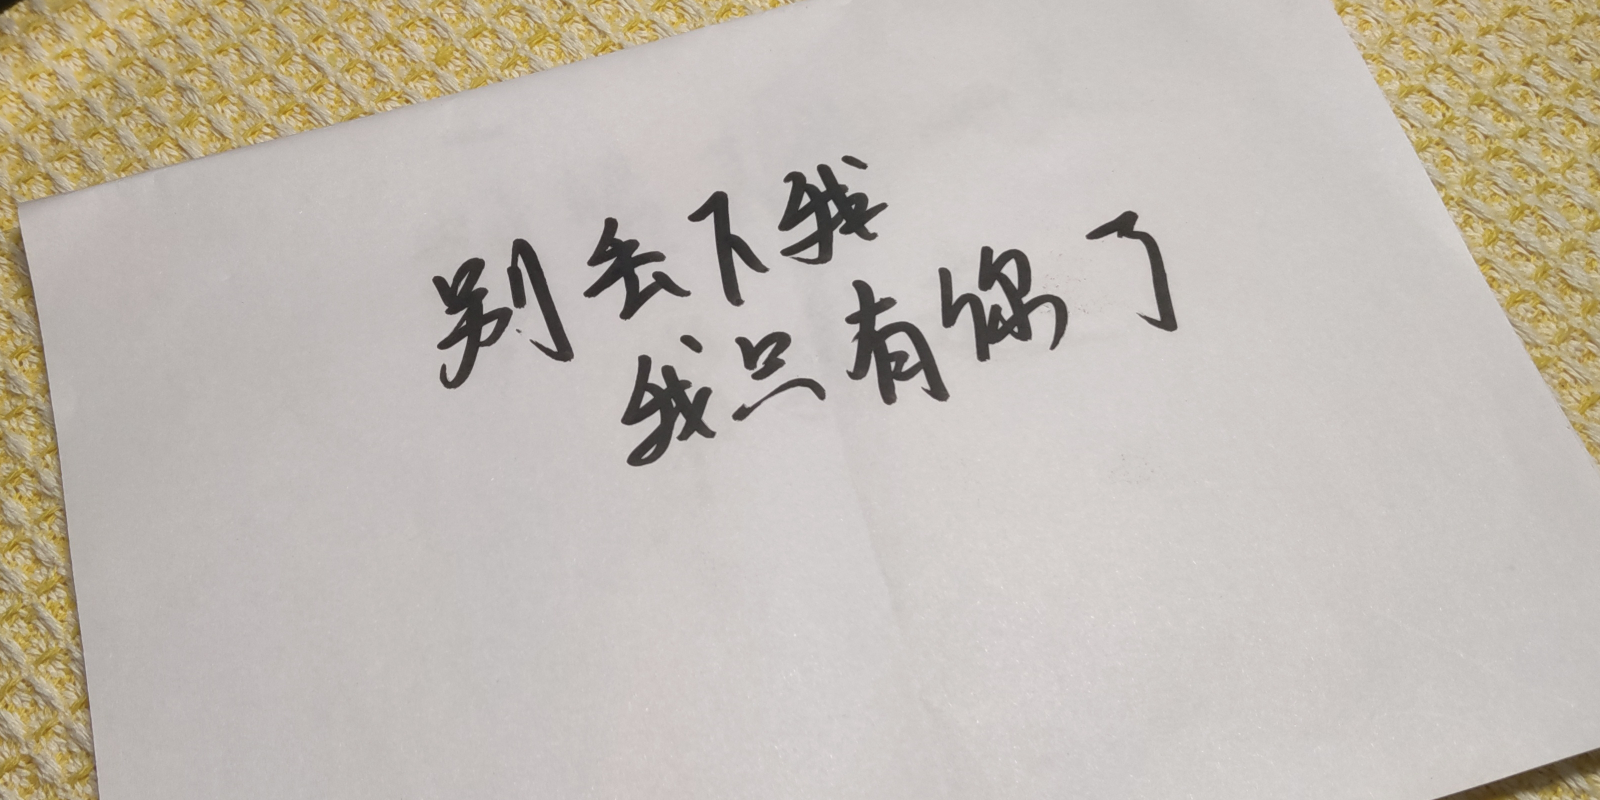 别丢下我
我只有你了